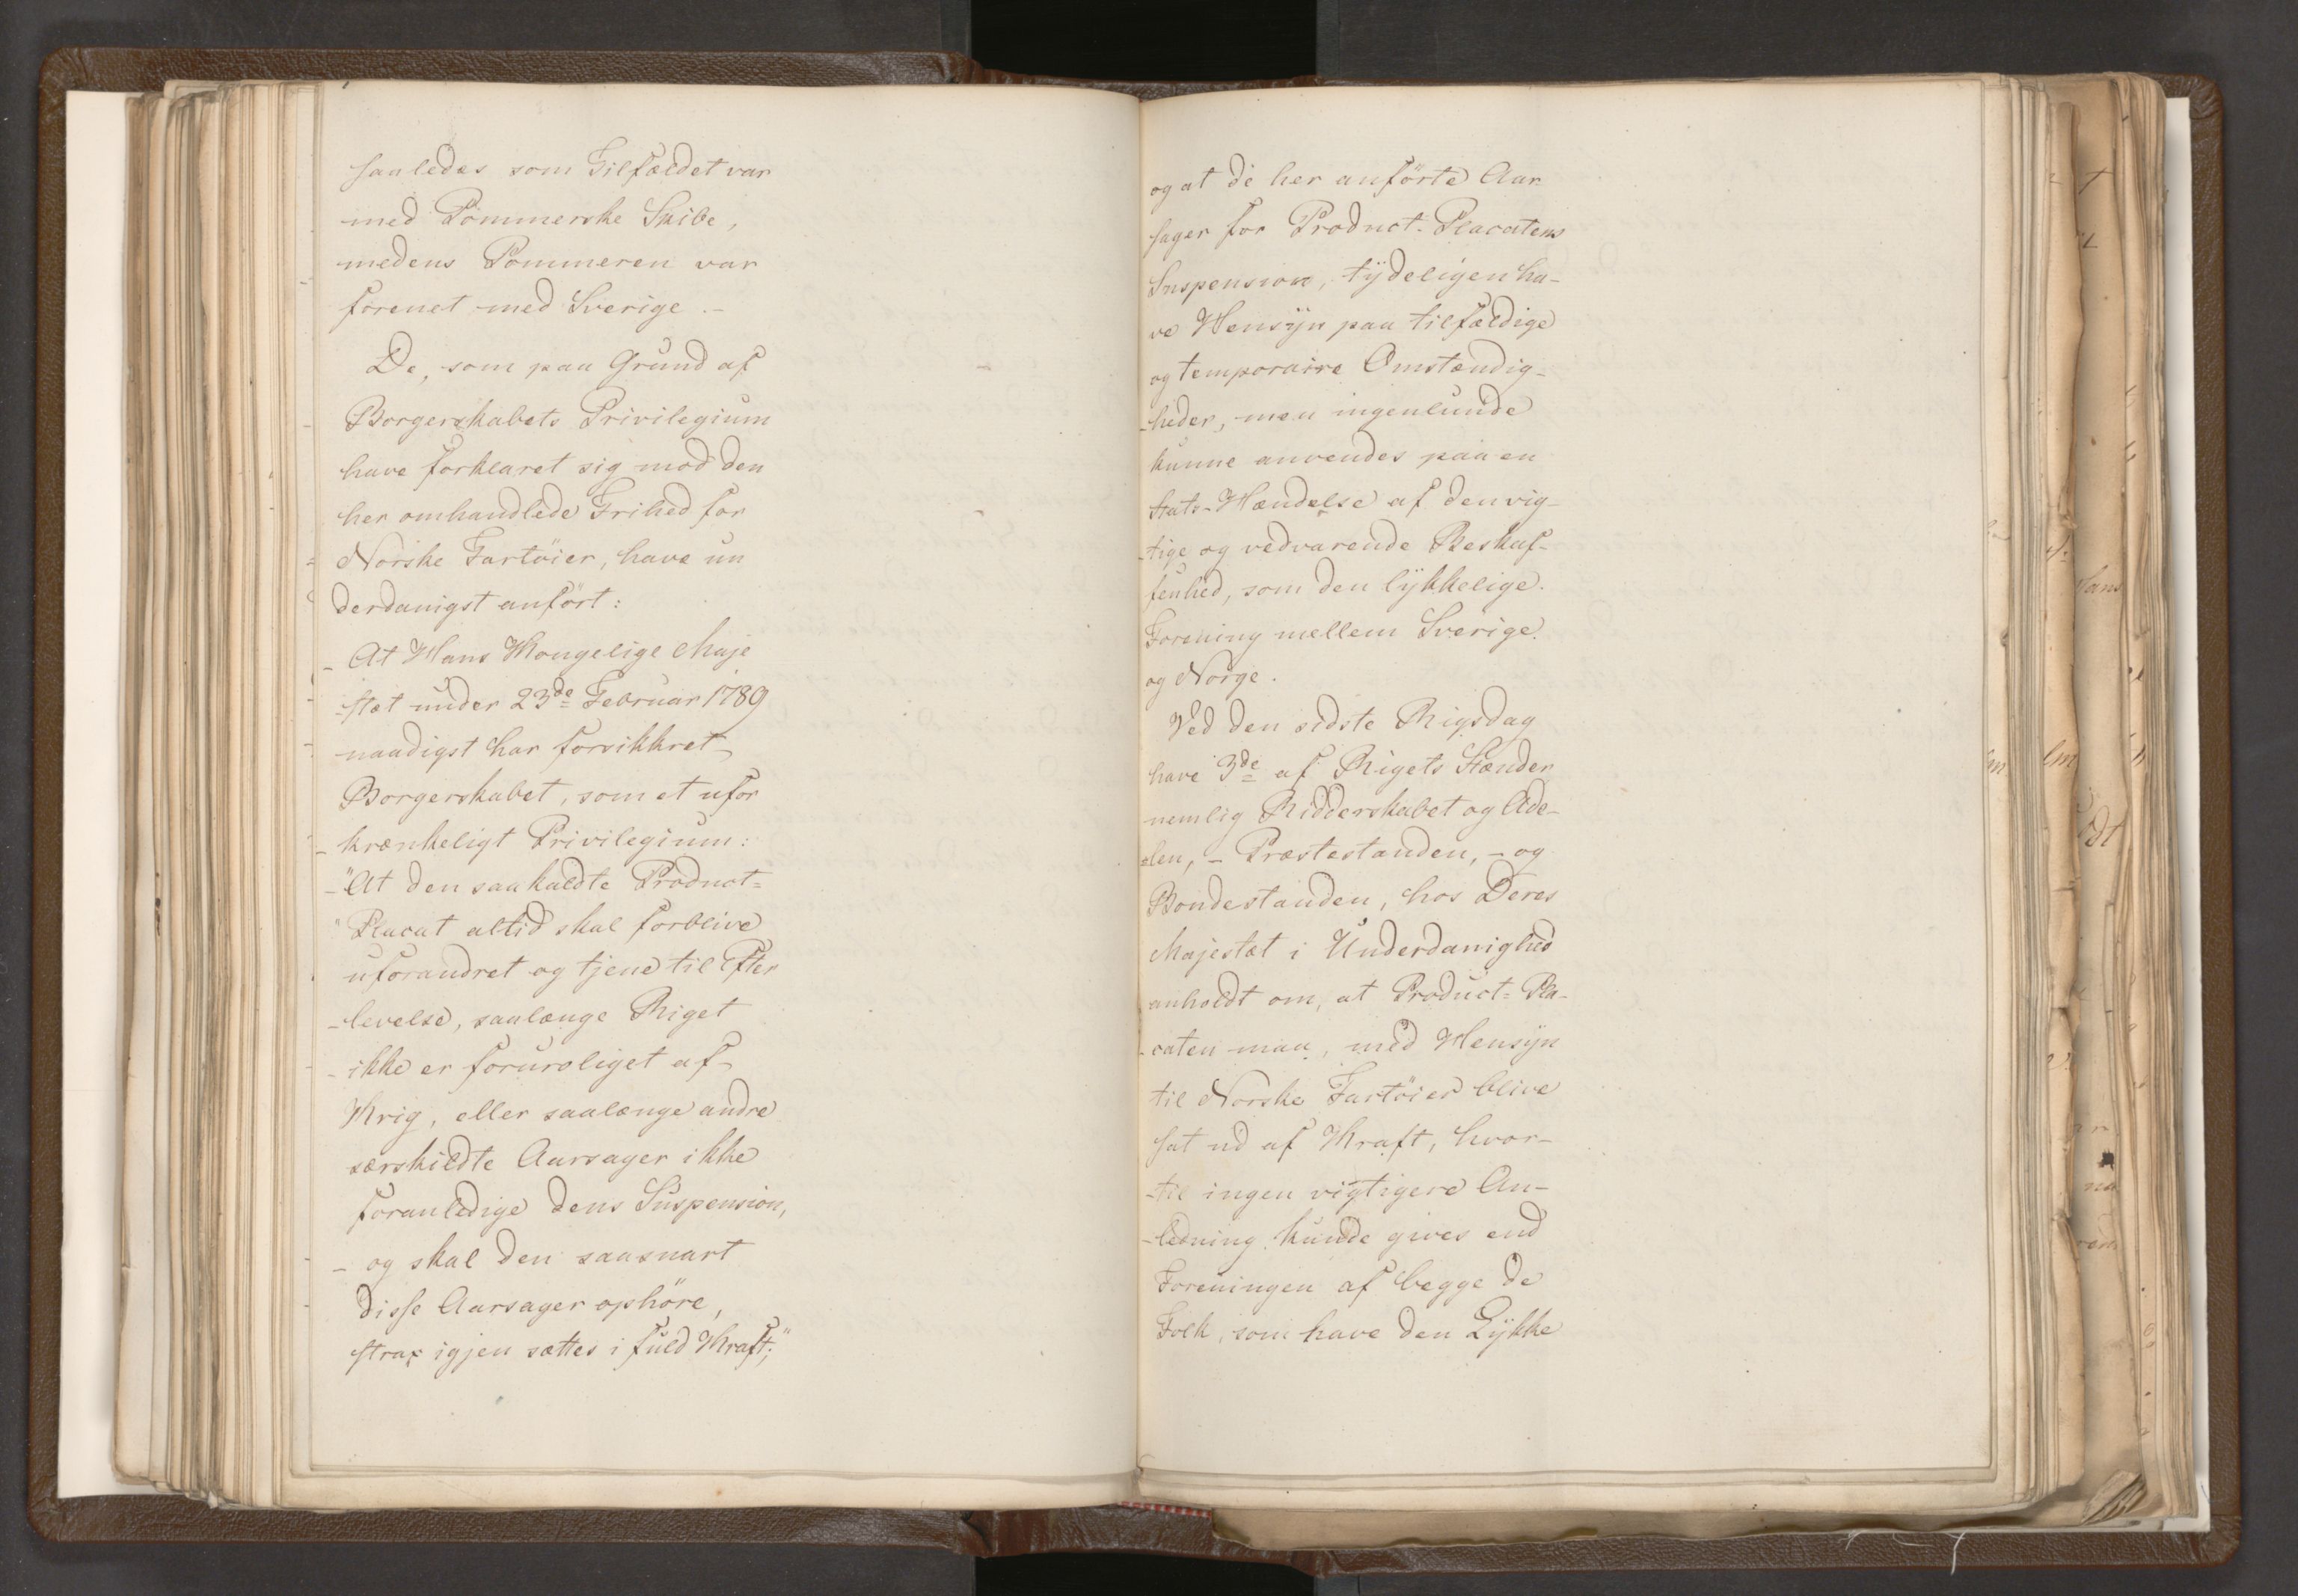 saaledes som Tilfældet var
med Pommerske Skibe,
medens Pommeren var
forenet med Sverige.-
De, som paa Grund af
Borgerskabets Privilegium
have forklaret sig mod den
her omhandlede Frihed for
Norske Fartöier, have un
derdanigst anfört:
- At Hans Kongelige Maje
-stæt under 23de Februar 1789
naadigst har forsikkret
Borgerskabet, som et ufor
-krænkeligt Privilegium:
-"At den saakaldte Product=
"Placat altid skal forblive
uforandret og tjene til Efter
-levelse, saalænge Riget
-ikke er foruroliget af
Krig, eller saalænge andre
særskildte Aarsager ikke
foranledige dens Suspension,
- og skal den saasnart
disse Aarsager ophöre,
strax igjen sættes i fuld Kraft;"
og at de her anförte Aar
sager for Product-Placatens
Suspension, tÿdeligen ha-
ve Hensÿn paa tilfældige
og temporaire Omstændig-
-heder, men ingenlunde
kunne anvendes paa en
Stats-Hændelse af den vig-
-tige og vedvarende Beskaf-
fenhed, som den lÿkkelige
Forening mellem Sverige
og Norge.
Ved den sidste Rigsdag
have 3de af Rigets Stænder
nemlig Ridderskabet og Ade-
-len, - Præstestanden, - og
Bondestanden, hos Deres
Majestæt i Underdanighed
anholdt om, at Product=Pla-
-caten maa, med Hensÿn
til Norske Fartöier blive
sat ud af Kraft, hvor-
-til ingen vigtigere An-
-ledning kunde gives end
Foreningen af begge de
Folk, som have den Lÿkke